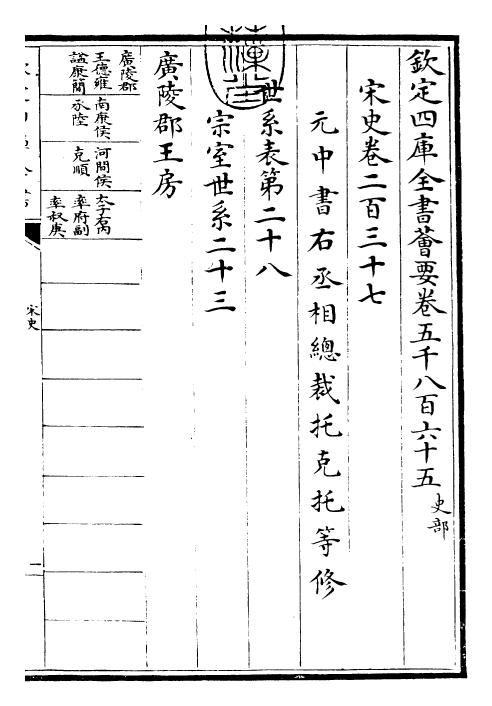 欽定四庫全書薈要卷五千八百六十五 史部
宋史卷二百三十七
元中書右丞相總裁托克托等修
世系表第二十八
宗室世系二十三
廣陵郡王房
廣陵郡
王德雍
諡康簡
南康侯
承陸
河間侯
克順
太子右内
率府副
率叔庚
宋史
一